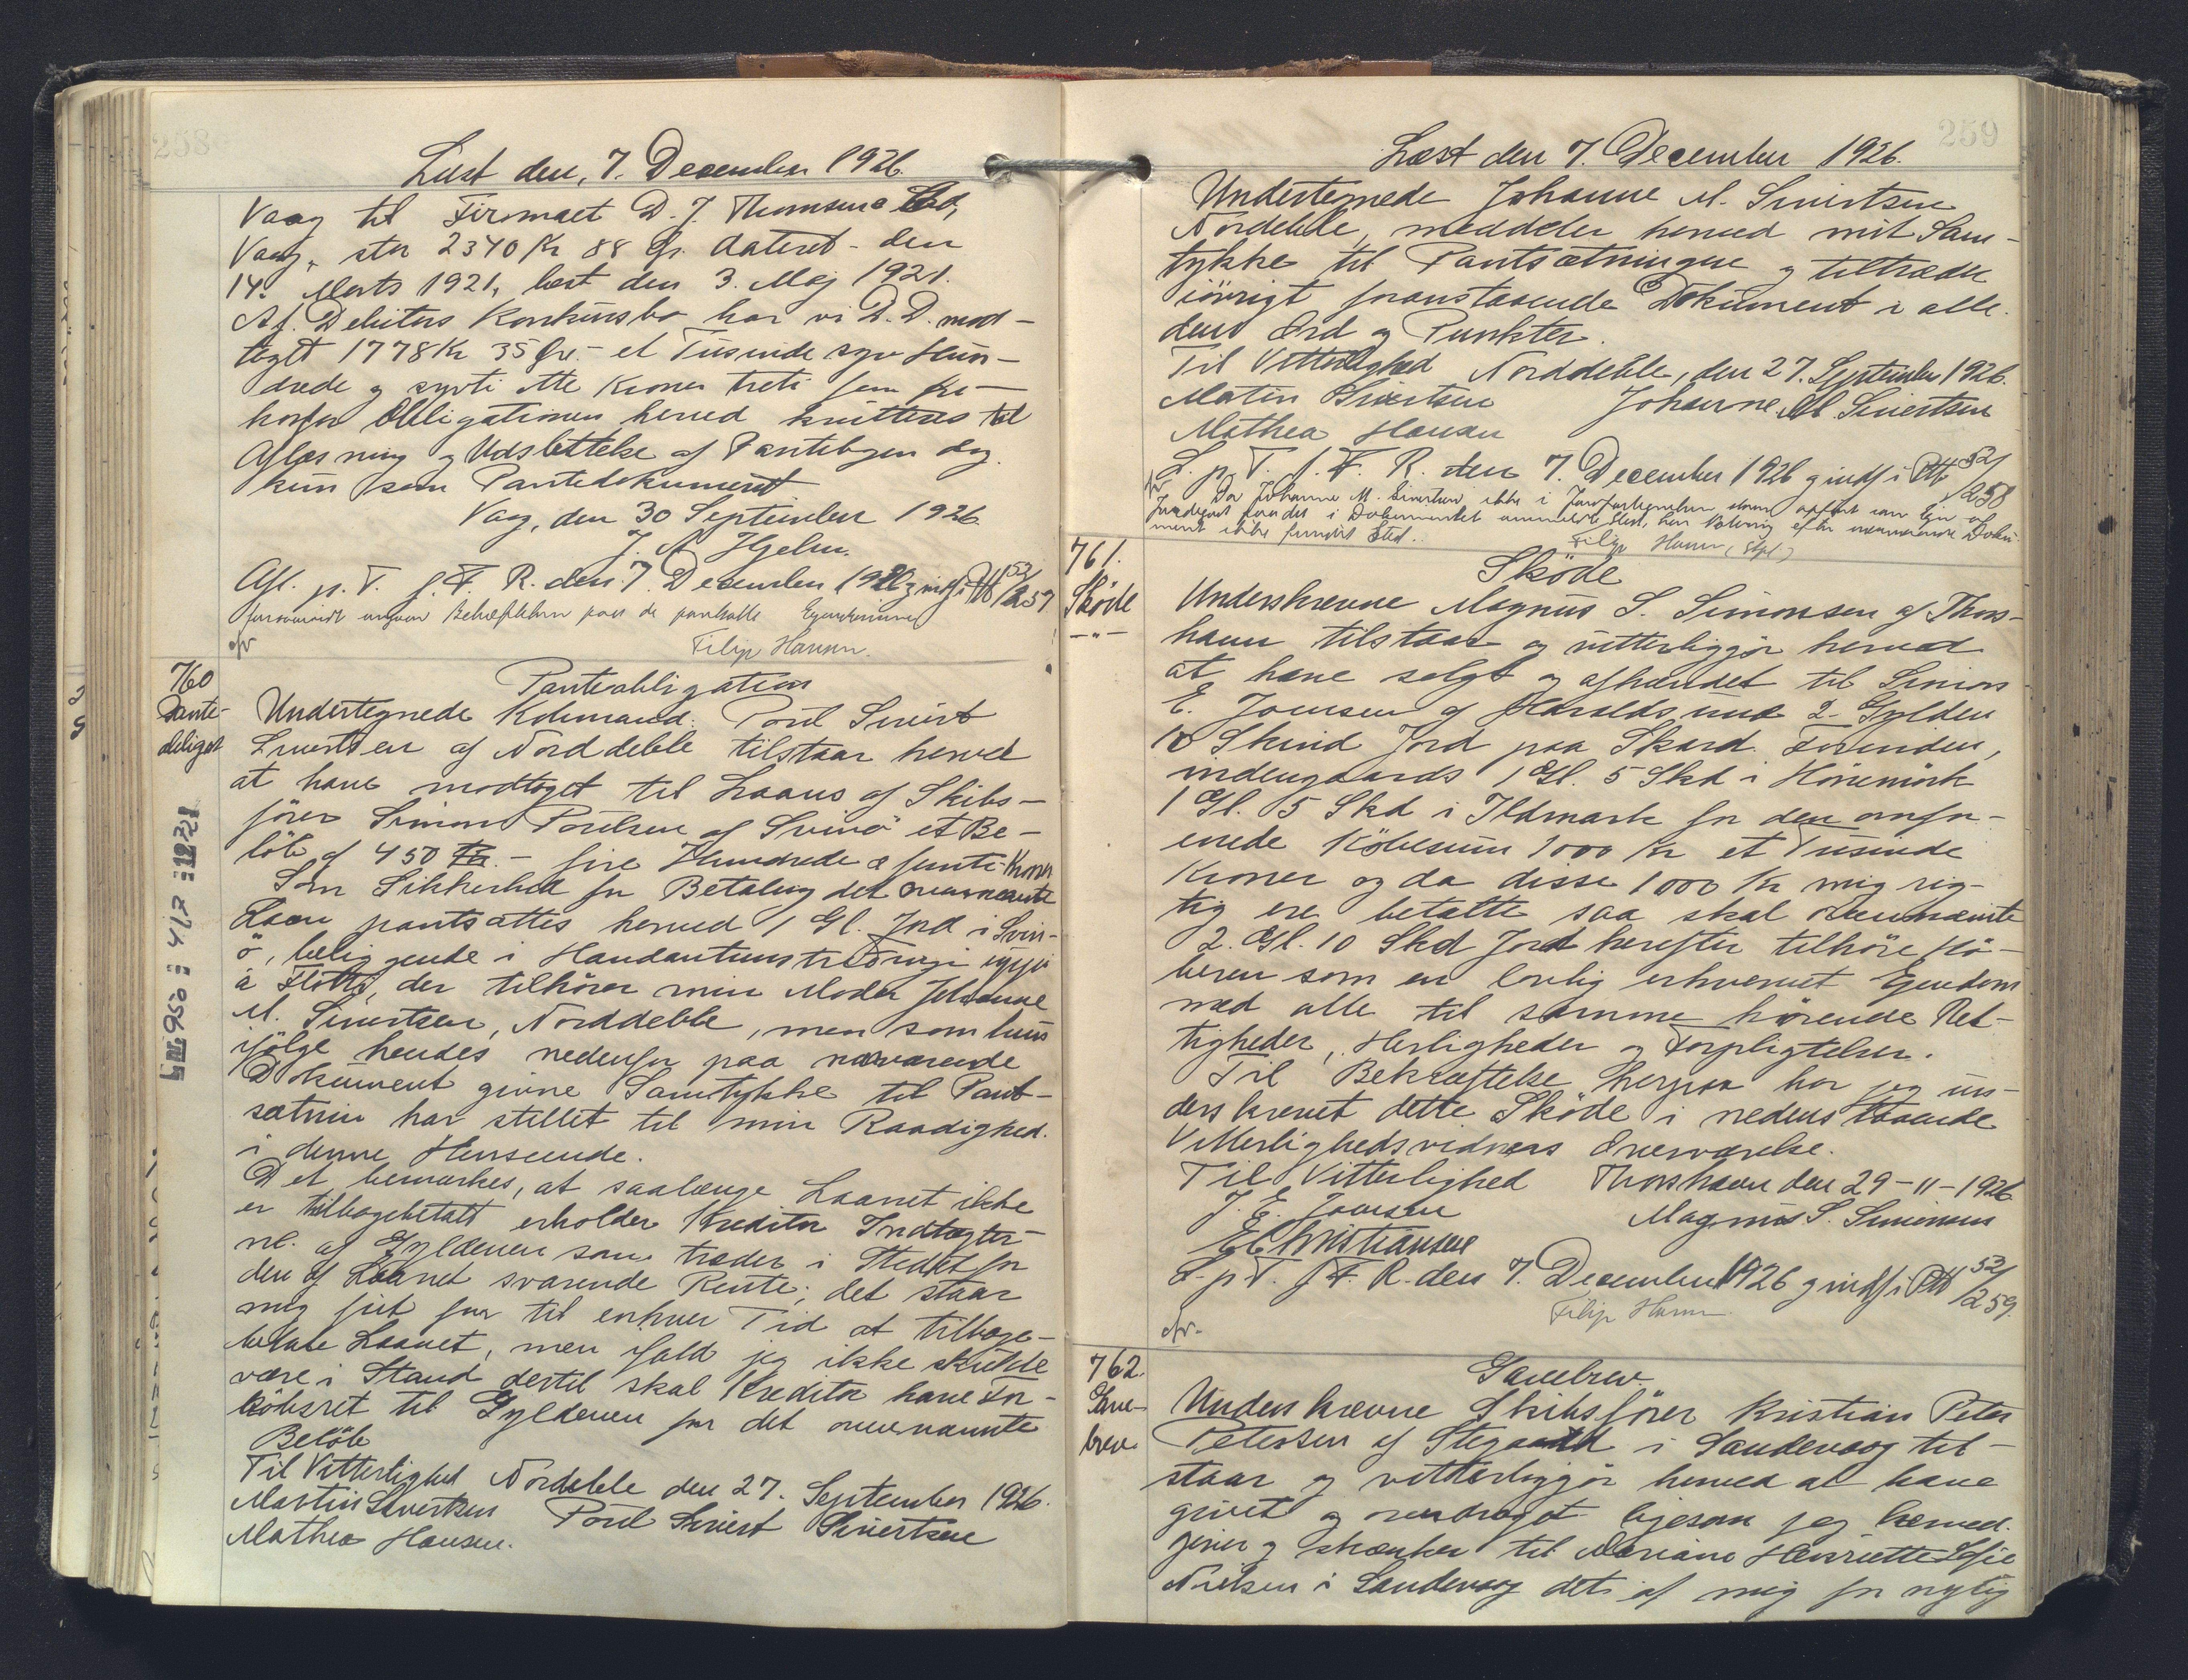 258
Læst den, 7. December 1926.
Vaag til Firmaet D. J. Thomsens Eftf,
Vaag, stor 2340 Kr 88 Ør. dateret - den
14. Marts 1921, læst den 3. Maj 1921.
Af Debitors Konkursbo har vi D. D. mod-
taget 1778 Kr 35 Øre - et Tusinde syv Hun-
drede og syvti otte Kroner treti fem Øre -
hvorfor Obligationen herved kvitteres til
Aflæsning og Udslettelse af Pantebogen dog
kun som Pantedokument
Vaag, den 30 September 1926.
J. A. Hjelm.
Afl. p. T. f. F. R. den 7 December 1926 g indf i Ptb 52/257
forsaavidt angaar Beheftelsen paa de pantsatte Ejendomme
Filip Hansen.
760
Pante-
obligat
Panteobligation
Undertegnede Købmand Poul Sivert
Sivertsen af Norddeble tilstaar herved
at have modtaget til Laans af Skibs-
fører Simon Poulsen af Svinö et Be-
løb af 450 Kr. - fire Hundrede o femti Kroner
Som Sikkerhed for Betaling det ovennævnte
Laan pantsættes herved 1 Gl. Jord i Svin-
ö, beliggende i Handantunströingi uppi
á Fløtti, der tilhører min Moder Johanne
M. Sivertsen, Norddeble, men som hun
ifölge hendes nedenfor paa nærværende
Dokument givne Samtykke til Pant-
sætnin har stillet til min Raadighed
i denne Henseende.
Det bemærkes, at saalænge Laanet ikke
er tilbagebetalt erholder Kreditor Indtægter-
ne af Gyldenen som træder i Stedet for
den af Laanet svarende Rente; det staar
mig frit for til enhver Tid at tilbage-
betale Laanet, men ifald jeg ikke skulde
være i Stand dertil skal Kreditor have For-
købsret til Gyldenen for det ovennævnte
Beløb
Til Vitterlighed Norddeble den 27. September 1926.
Martin Sivertsen Poul Sivert Sivertsen
Mathea Hansen.
259
Læst den 7. December 1926.
Undertegnede Johanne M. Sivertsen
Norddeble, meddeler herved mit Sam-
tykke til Pantsætningen og tiltræder
iövrigt foranstaaende Dokument i alle
dens Ord og Punkter.
Til Vitterlighed Norddeble, den 27. September 1926.
Matin Sivertsen Johanne M. Sivertsen
Mathea Hansen
L. p. T. f. F. R. den 7. December 1926 g indf i Ptb 52/258
Da Johanne M. Sivertsen ikke i Jordfortegnelsen staar opført som Ejer af
Jordegods paa det i Dokumentet ommeldte Sted, har Notering efter nærværende Doku-
ment ikke fundet Sted.
Filip Hansen (Stpl)
761.
Sköde
-"-
Sköde
Underskrevne Magnus S. Simonsen af Thors-
havn tilstaar og vitterliggjör herved
at have solgt og afhændet til Simon
E. Joensen af Haraldssund 2 Gylden
10 Skind Jord paa Skard. Forinden,
indengaards 1 Gl. 5 Skd i Hörnemörk
1 Gl. 5 Skd i Ildmark for den omfor-
enede Köbesum 1000 Kr et Tusinde
Kroner og da disse 1000 Kr mig rig-
tig ere betalte saa skal ovennævnte
2. Gl. 10 Skd Jord herefter tilhöre Kö-
beren som en lovlig erhvervet Ejendom
med alle til samme hörende Ret-
tigheder, Herligheder og Forpligtelser.
Til Bekræftelse herpaa har jeg un-
derskrevet dette Sköde i nedenstaaende
Vitterlighedsvidners Overværelse.
Til Vitterlighed Thorshavn den 29-11-1926
J. E. Joensen Magnus S. Simonsen
E Christiansen
L. p. T. f. F. R. den 7. December 1926 g indf i Ptb 52/259.
Filip Hansen
762.
Gave-
brev.
Gavebrev.
Underskrevne Skibsförer Kristian Peter
Petersen af Stegaard i Sandevaag til-
staar og vitterliggjör herved at have
givet og overdraget ligesom jeg herved
giver og skænker til Mariane Henriette Sofie
Nielsen i Sandevaag det af mig for nylig